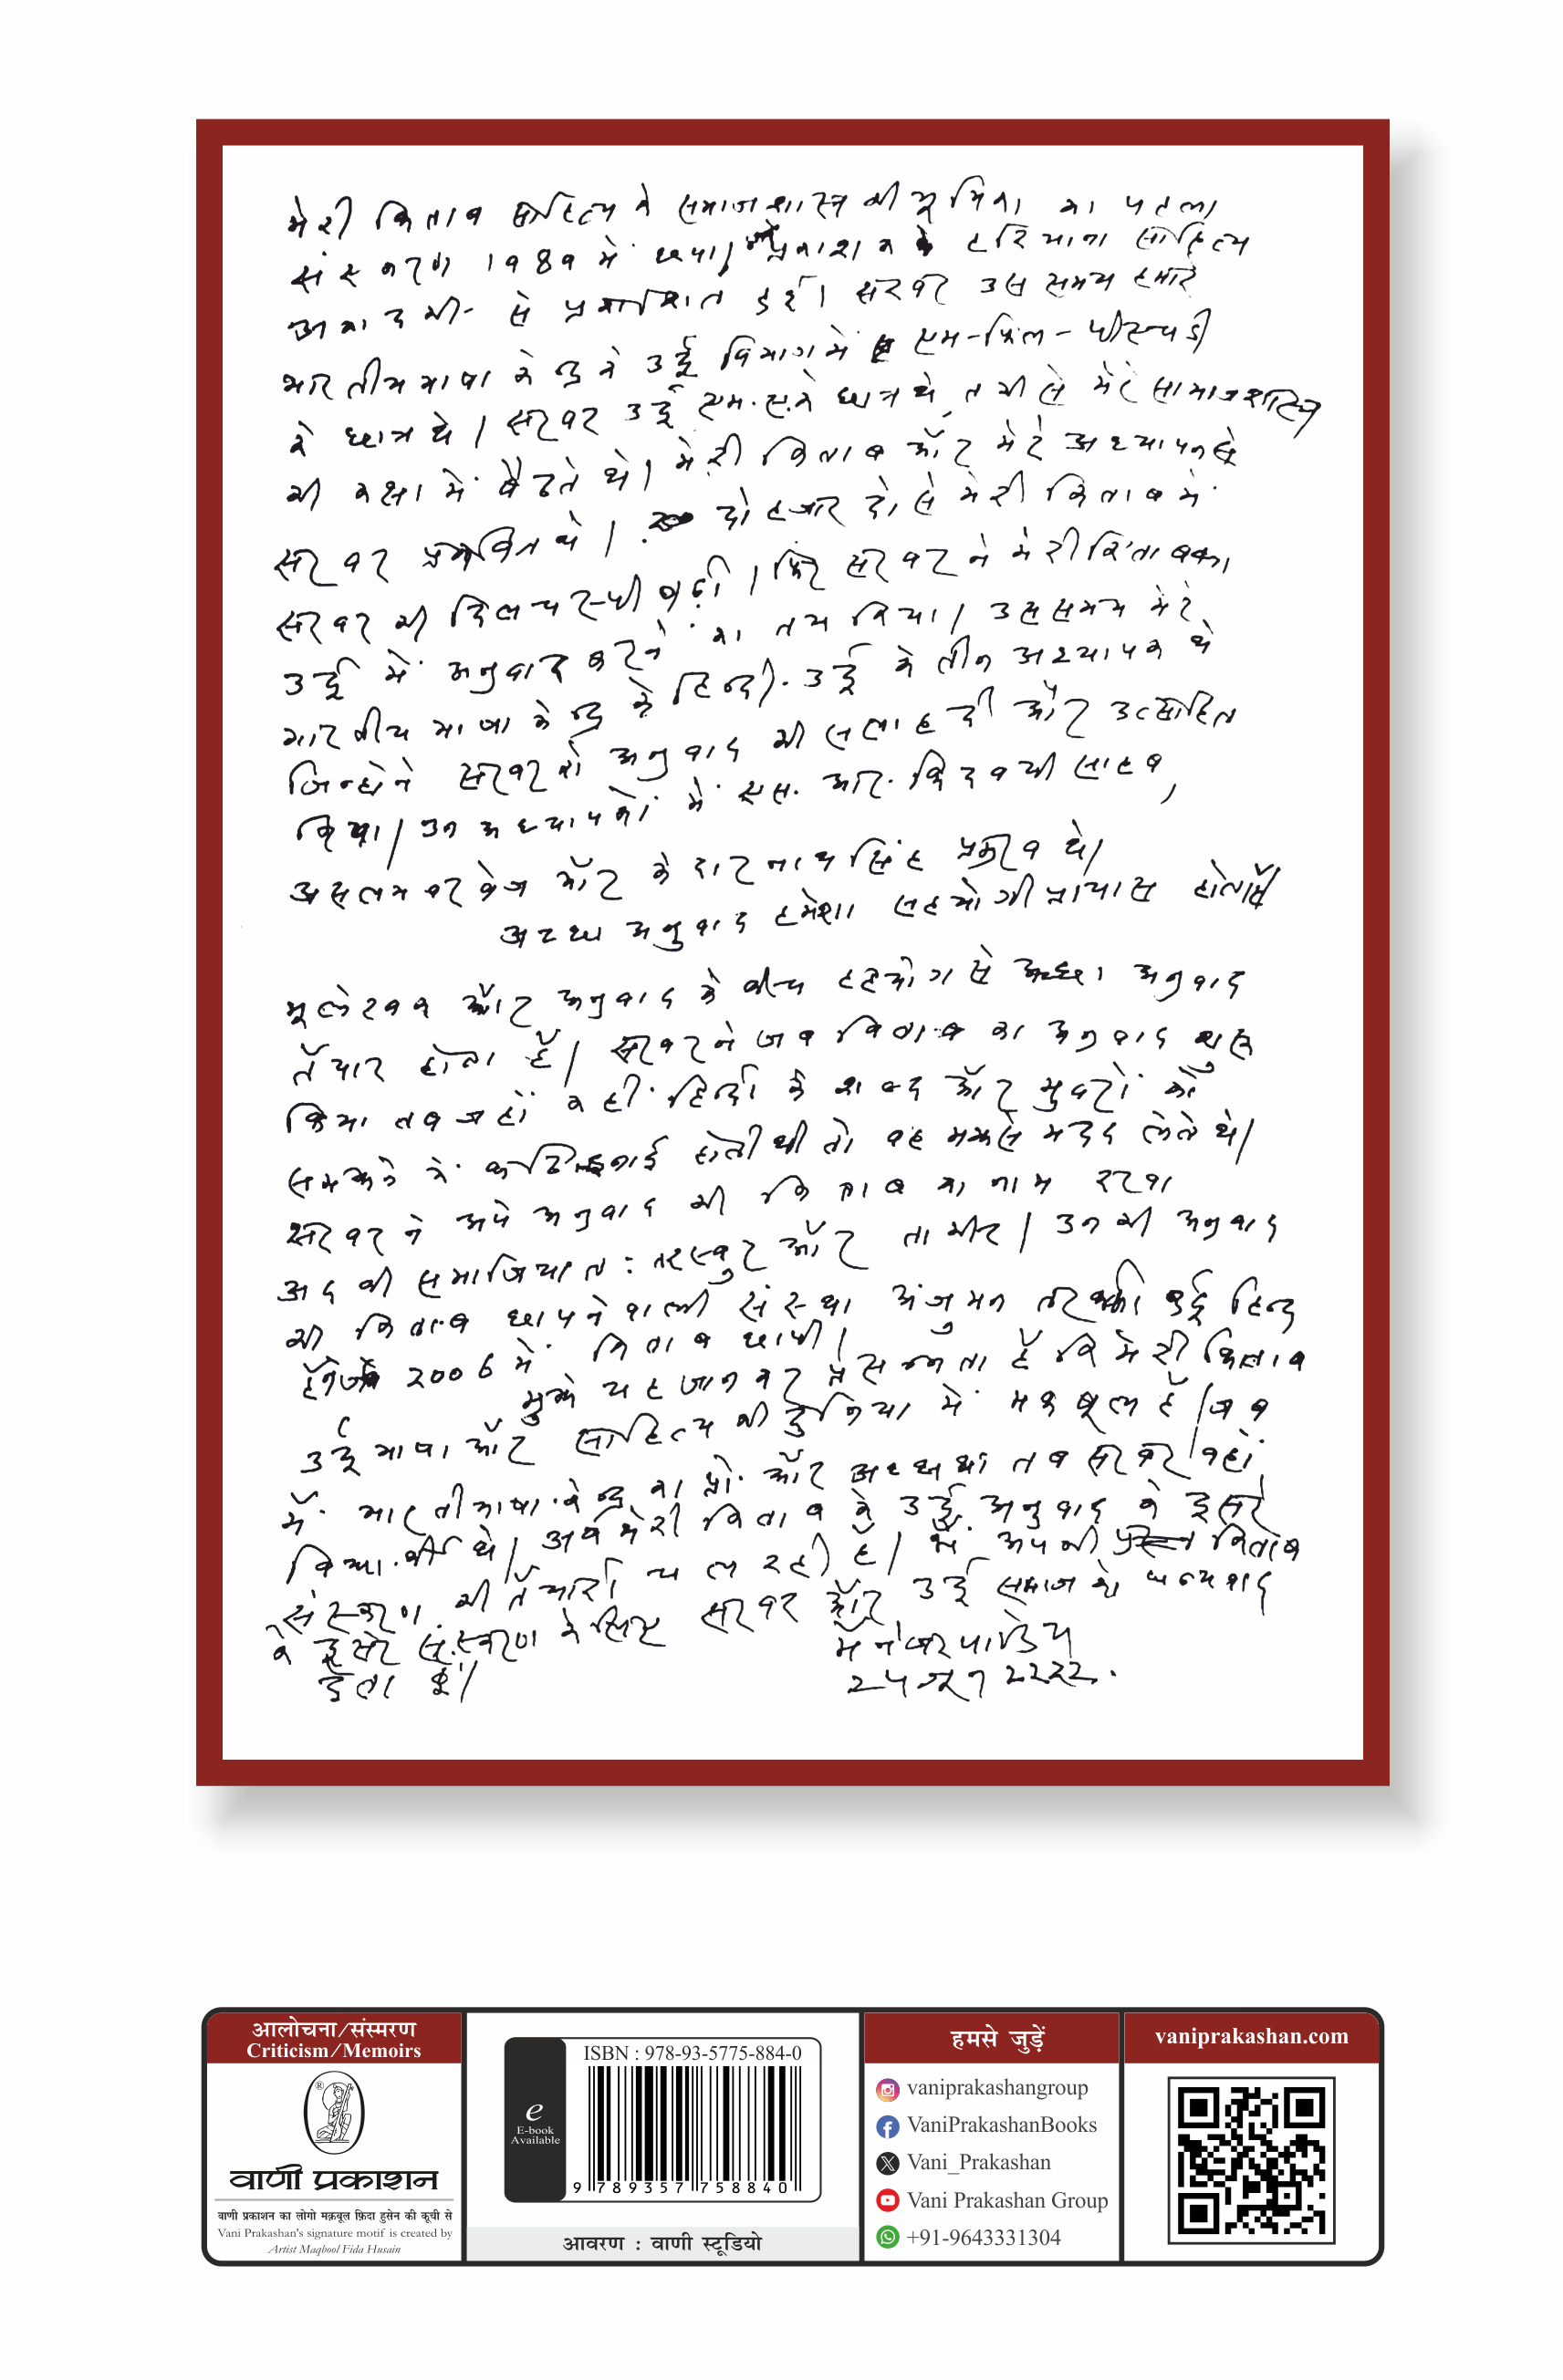 मेरी किताब साहित्य के समाजशास्त्र की भूमिका का पहला
संस्करण 1989 में छपा। प्रकाशन के हरियाणा साहित्य
अकादमी से प्रकाशित हुई। सरवर उस समय हमारे
भारतीय भाषा केन्द्र के उर्दू विभाग में एम-फिल-पीएचडी
के छात्र थे। सरवर उर्दू एम.ए. के छात्र थे, तभी से मेरे सामाजशास्त्र
की कक्षा में बैठते थे। मेरी किताब और मेरे अध्यापन से
सरवर प्रभावित थे। दो हजार दो से मेरी किताब में
सरवर की दिलचस्पी बढ़ी। फिर सरवर ने मेरी किताब का
उर्दू में अनुवाद करने का तय किया। उस समय मेरे
भारतीय भाषा केन्द्र के हिन्दी-उर्दू के तीन अध्यापक थे
जिन्होंने सरवर को अनुवाद की सलाह दी और उत्साहित
किया। उन अध्यापकों में एस. आर. किदवयी साहब,
असलम परवेज और केदारनाथ सिंह प्रमुख थे।
अच्छा अनुवाद हमेशा सहयोगी प्रायास होता है
मूल लेखक और अनुवाद के बीच सहयोग से अच्छा अनुवाद
तैयार होता है। सरवर ने जब किताब का अनुवाद शुरू
किया तब जहाँ कहीं हिन्दी के शब्द और मुहावरों को
समझने में कठिनाई होती थी तो वह मुझसे मदद लेते थे।
सरवर ने अपने अनुवाद की किताब का नाम रखा
अदबी समाजियात : तसव्वुर और ताबीर। उनकी अनुवाद
की किताब छापने वाली संस्था अंजुमन तरक्की उर्दू हिन्द
2006 में किताब छापी।
मुझे यह जानकर प्रसन्नता है कि मेरी किताब
उर्दू भाषा और साहित्य की दुनिया में मकबूल है। जब
मैं भारतीभाषा केन्द्र का प्रो. और अध्यक्ष था तब सरवर वहाँ
विद्यार्थी थे। अब मेरी किताब के उर्दू अनुवाद के दूसरे
संस्करण की तैयारी चल रही है। मैं अपनी किताब
के दूसरे संस्करण के लिए सरवर और उर्दू समाज को धन्यवाद
देता हूँ।
मैनेजर पाण्डेय
24 जून 2022.
आलोचना/संस्मरण
Criticism/Memoirs
®
वाणी प्रकाशन
वाणी प्रकाशन का लोगो मक़बूल फ़िदा हुसेन की कूची से
Vani Prakashan's signature motif is created by
Artist Maqbool Fida Husain
e
E-book
Available
ISBN : 978-93-5775-884-0
9 789357 758840
आवरण : वाणी स्टूडियो
हमसे जुड़ें
vaniprakashangroup
VaniPrakashanBooks
Vani_Prakashan
Vani Prakashan Group
+91-9643331304
vaniprakashan.com